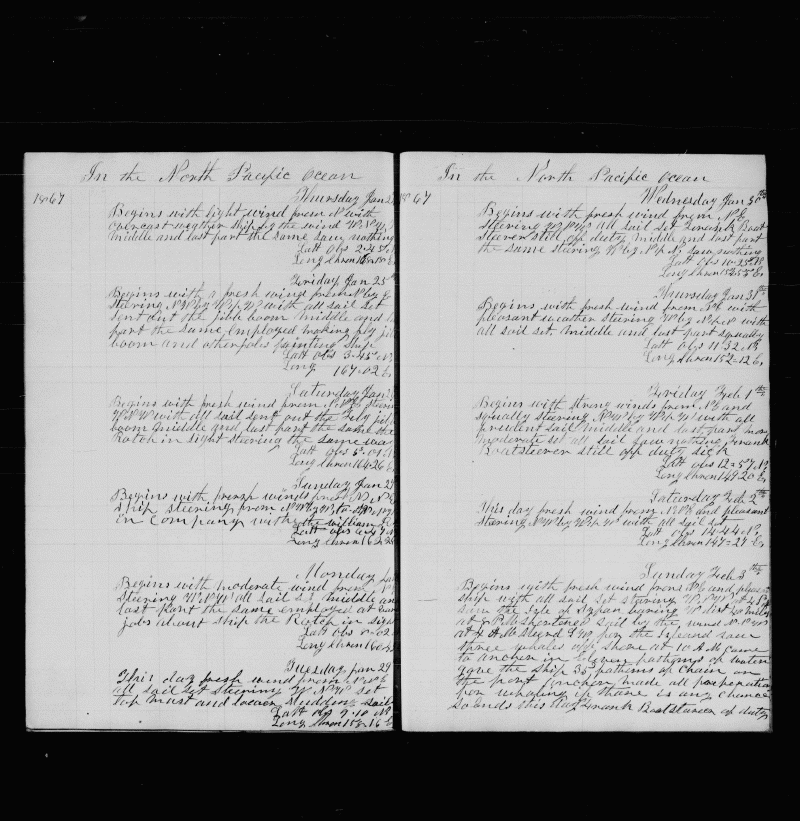 In the North Pacific Ocean
1867
Thursday Jan 2
Begins with light wind from N with
overcast weather ship by the wind W.N.W.
Middle and last part the same saw nothing
Latt Obs 2-45 N
Long Chron E
Friday Jan 25th
Begins with a fresh wind from N by E
steering N W by W W with all sail set
sent out the jibb boom Middle and l
part the same Employed making fly jib
boom and other jobs painting ship
Latt Obs 3-45 N
Long 167-02 E
Saturday Jan 2
Begins with fresh wind from steering
W N W with all sail sent out the Fly jib
boom Middle and last part the same the
Rotch in sight steering the same way
Latt Obs 5-
Long Chron 164 26 E
Sunday Jan 2
Begins with fresh winds from N N E
ship steering from N W by W to
in Company with the William
Latt obs
Long Chron 162
Monday Jan
Begins with moderate wind from
steering W N W all sail set Middle an
last Part the same employed at
jobs about ship the Rotch in sigh
Latt Obs 8-02
Long Chron 160
Tuesday Jan 29
This day fresh wind from
all sail set steering W N W set
top mast and lower studding sails
Latt Obs 9-10 N
Long Chron 16 E
In the North Pacific Ocean
1867
Wednesday Jan 30th
Begins with fresh wind from N E
steering W N W all sail set Frank Boat
steerer still off duty Middle and last part
the same steering W by N saw nothing
Latt Obs 10-25 N
Long Chron 155 E
Thursday Jan 31th
Begins with fresh wind from N E with
pleasant weather steering W by N with
all sail set. Middle and last part squally
Latt Obs 11-32 N
Long Chron 152-12 E
Friday Feb 1th
Begins with strong winds from N E and
squally steering N W by W W with all
prudent sail Middle and last part more
moderate set all sail saw nothing Frank
Boatsteerer still off duty sick
Latt obs 12-57 N
Long Chron 149 20 E
Saturday Feb 2th
This day fresh wind from N E and pleasant
steering N W by W W with all sail set
Latt Obs 14-44 N
Long Chron 147-27 E
Sunday Feb 3th
Begins with fresh wind from N E and pleas
ship with all sail set steering
saw the Isle of bearing W dist 20 miles
at 6 P M shortened sail by the wind
at 4 A M steerd for the Island saw
three whales off shore at 10 A M came
to anchor in Eleven fathoms of water
gave the ship 35 fathoms of chain on
the port anchor made all preperation
for whaling if thare is any chance
So ends this day Frank Boatsteerer of duty